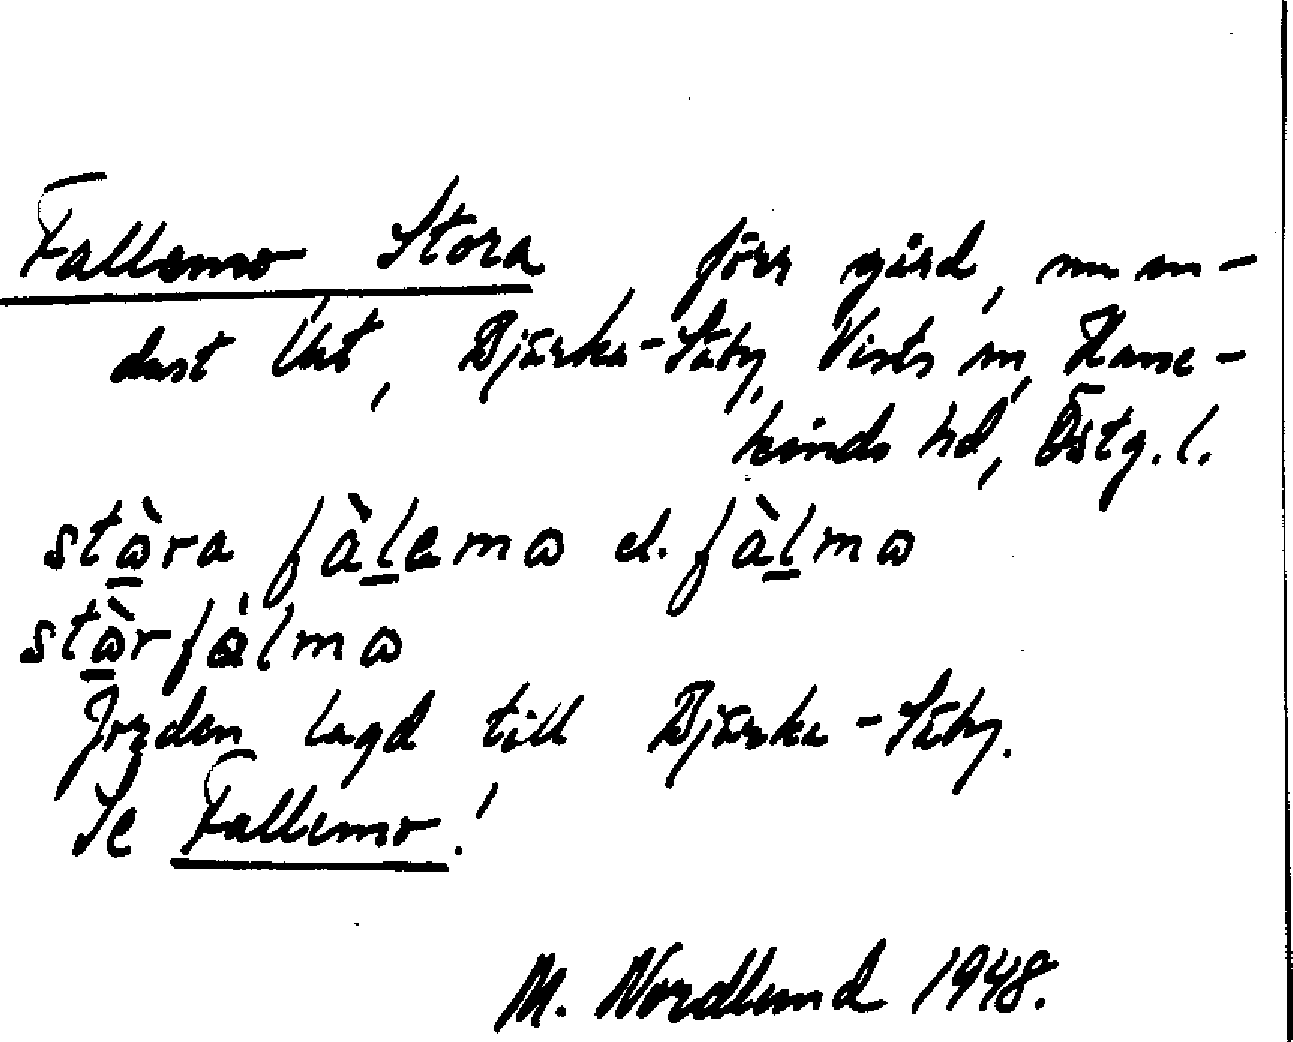 Fallemo Stora förr gård, nu en-
dast Utt, Bjärka-Säby, Vists sn, Hane-
kinds hd, Östg. l.
stὼra fàlema el. fàlma
stὼrfàlma
Jorden lagd till Bjärka-Säby.
Se Fallemo!
M. Nordlund 1948.